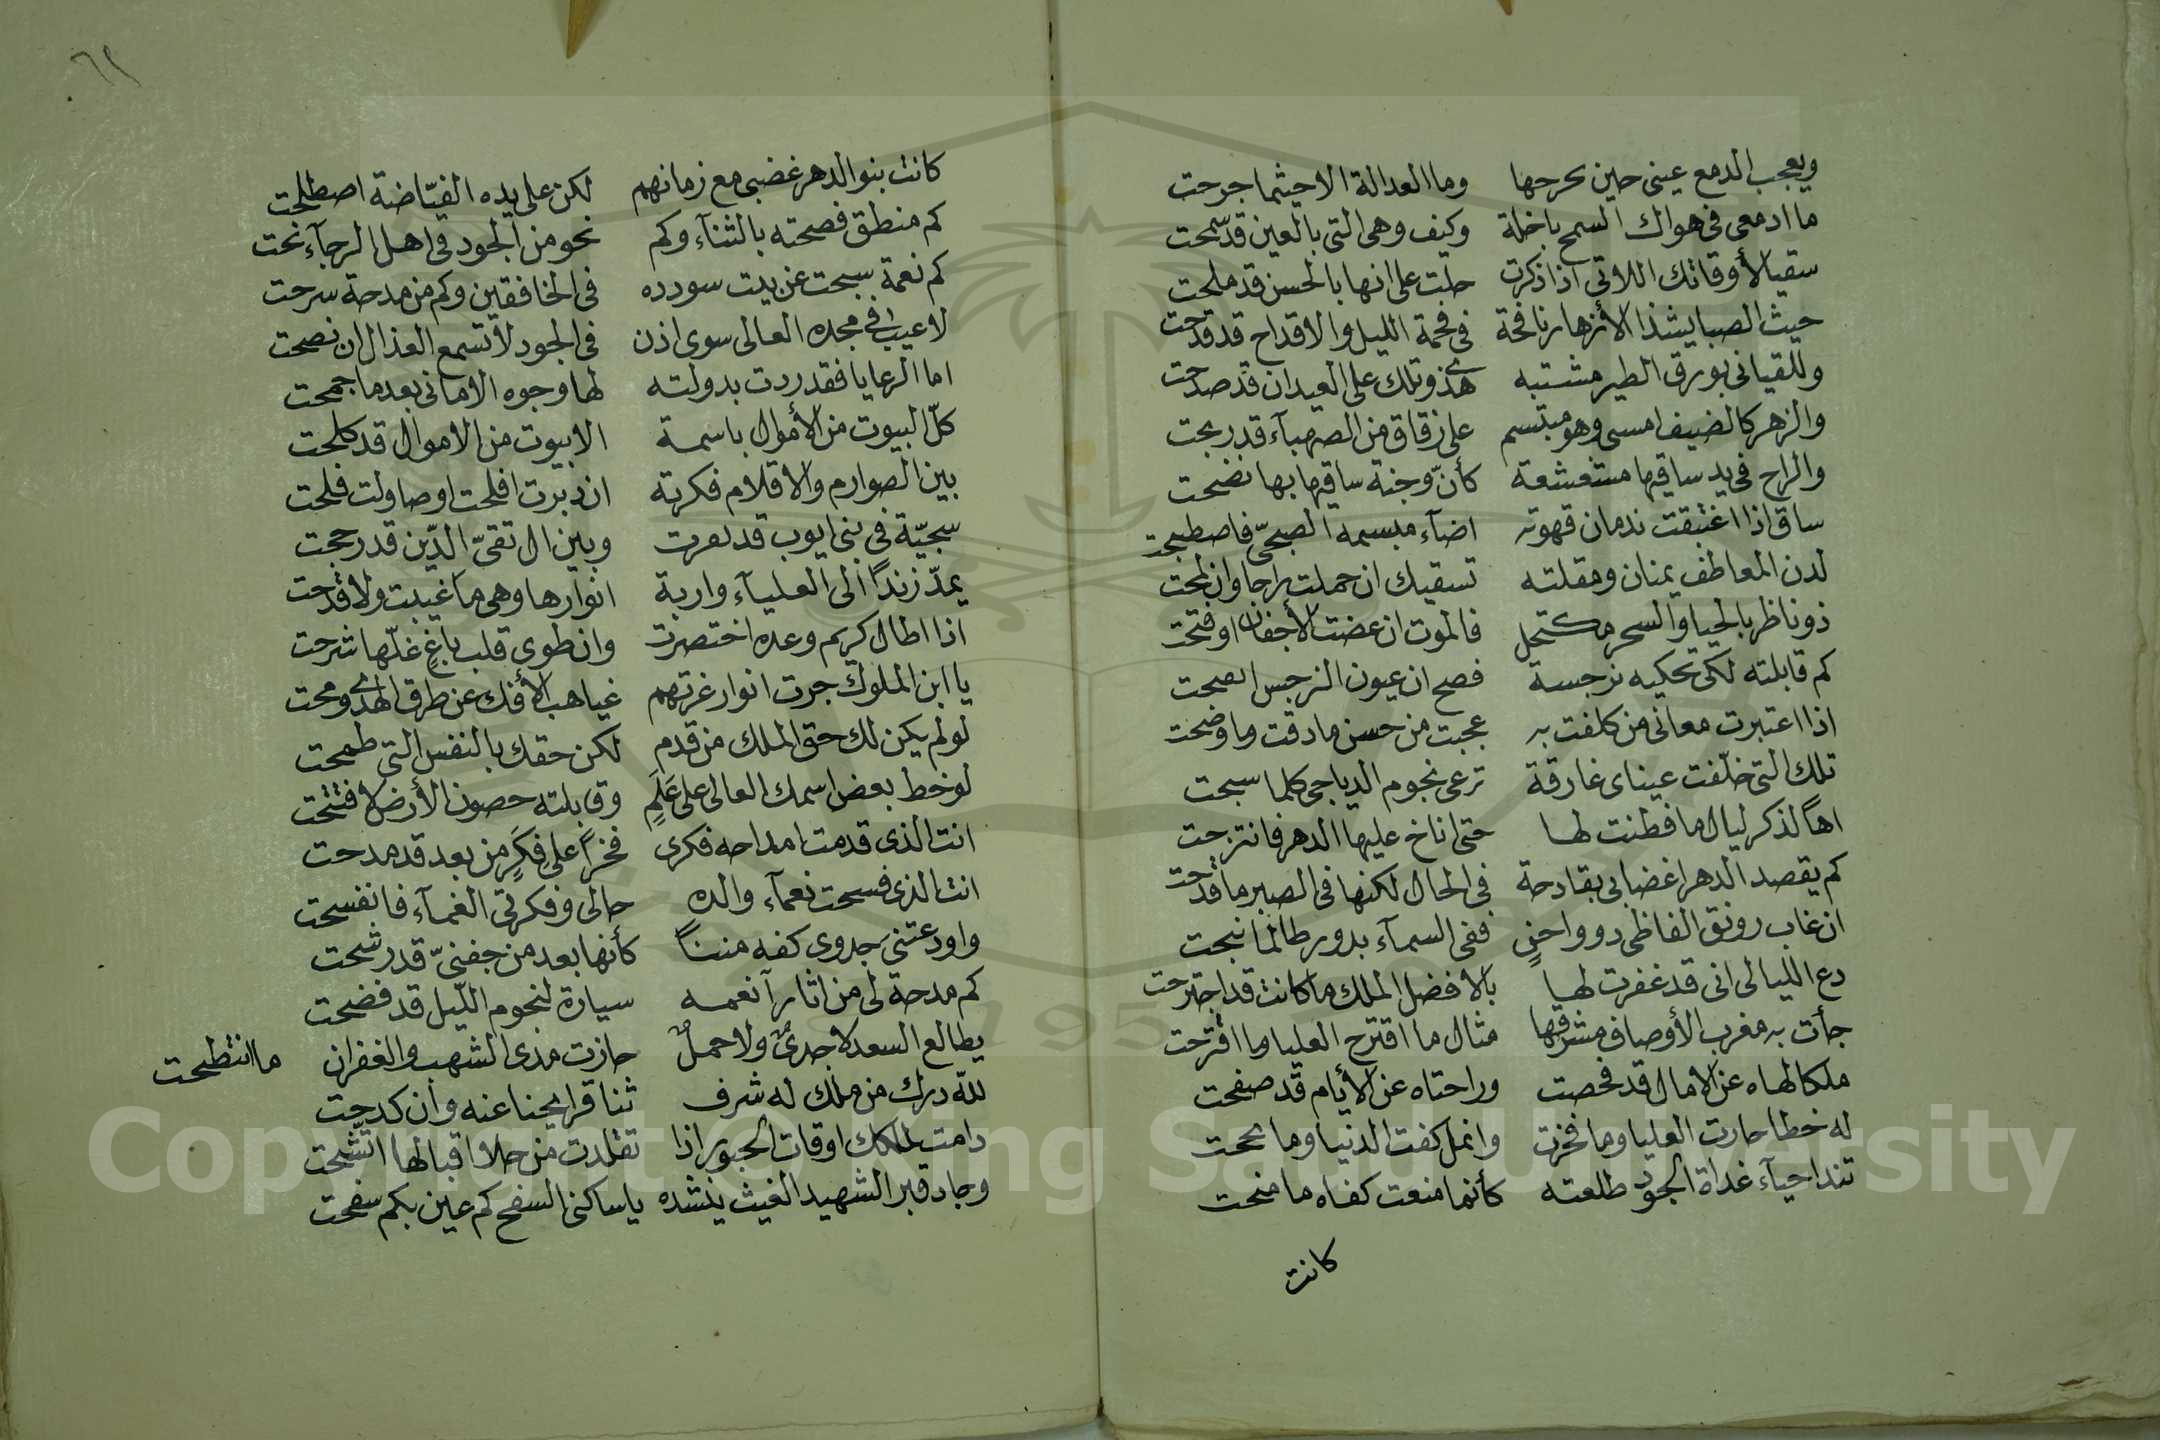 ويعجب الدمع عينى حين يجرحها وما العدالة الا حيثما جرحت
ما ادمعى فى هواك السمح باخلة وكيف وهى التى بالعين قد سمحت
سقيا لأوقاتك اللاتى اذا ذكرت حلت على انها بالحسن قد ملحت
حيث الصبا بشذا الأزهار نافحة فى فحمة الليل والاقداح قد قدحت
وللقيانى بورق الطير مشتبه هذى وتلك على العيدان قد صدحت
والزهر كالضيف امسى وهو مبتسم على زقاق من الصهبآء قد ربحت
والراح فى يد ساقيها مشعشعة كأنّ وجنة ساقيها بها نضحت
ساق اذا اغتبقت ندمان قهوته اضآء مبسمه الصبحىّ فاصطبحت
لدن المعاطف يمنان ومقلته تسقيك ان حملت راحا وان لمحت
ذو ناظر بالحيا والسحر مكتحل فالموت ان غضت الأجفان او فتحت
كم قابلته لكى تحكيه نرجسة فصح ان عيون النرجس اتصحت
اذا اعتبرت معانى من كلفت به عجبت من حسن ما دقت وما وضحت
تلك التى خلّفت عيناى غارقة ترعى نجوم الدياجى كلما سبحت
اهاً لذكر ليال ما فطنت لها حتى اناخ عليها الدهر فانتزحت
كم يقصد الدهر اغضابى بقادحة فى الحال لكنها فى الصبر ما قدحت
ان غاب رونق الفاظى ففى السمآء بدور طالما نبحت
دع الليالى انى قد غفرت لها بالافضل الملك ما كانت قد اجترحت
جأت به مغرب الأوصاف مشرقها مثال ما اقترح العليا وما اقترحت
ملكا لهاه عن الامال قد فحصت وراحتاه عن الأيام قد صفحت
له خطا حازت العليا وما فخرت وانمل كفت الدنيا وما بححت
تندا حيآء غداة الجود طلعته كأنما منعت كفاه ما منحت
كانت
٦٩
كانت بنو الدهر غضبى مع زمانهم لكن على يده الفيّاضة اصطلحت
كم منطق فصحته بالثنآء وكم نحو من الجود فى اهل الرجآء نحت
كم نعمة سبحت عن بيت سودده فى الخافقين وكم من مدحة سرحت
لا عيب فى مجده العالى سوى اذن فى الجود لا تسمع العذال ان نصحت
اما الرعايا فقد ردت بدولته لها وجوه الامانى بعد ما جمحت
كلّ البيوت من الأموال باسمة الا بيوت من الاموال قد كلحت
بين الصوارم والاقلام فكرته ان دبرت افلحت او صاولت فلحت
سجيّة فى بنى ايوب قد لعرت وبين ال تقىّ الدّين قد رجحت
يمدّ زنداً الى العليآء وارية انوارها وهى ما غيبت ولا قدحت
اذا اطال كريم وعده اختصرت وان طوى قلب باغٍ غلّها شرحت
يا ابن الملوك جرت انوار غرتهم غياهب الأفك عن طرق الهدى ومحت
لو لم يكن لك حق الملك من قدم لكن حقك بالنفس التى طمحت
لو خط بعض اسمك العالى على عَلَمٍ وقابلته حصون الأرض لافتتحت
انت الذى قدمت امداحه فكرى فخراً على فِكَرٍ من بعد قد مدحت
انت الذى فسحت نعمآء والده حالى وفكرتى الغمآء فانفسحت
واودعتنى جدوى كفه منناً كأنها بعد من جفنىّ قد رشحت
كم مدحة لى من اثار انعمه سيارة لنجوم اللّيل قد فضحت
يطالع السعد لا جدىٌ ولا حملٌ حازت مدى الشهب والغفران ما انتطحت
للّه درك من ملك له شرف ثنا قرايحنا عنه وان كدحت
دامت لملكك اوقات الحبور اذا تقلدت من حلا اقبالها اتّشحت
وجاد قبر الشهيد الغيث ينشده يا ساكنى السفح كم عين بكم سفحت